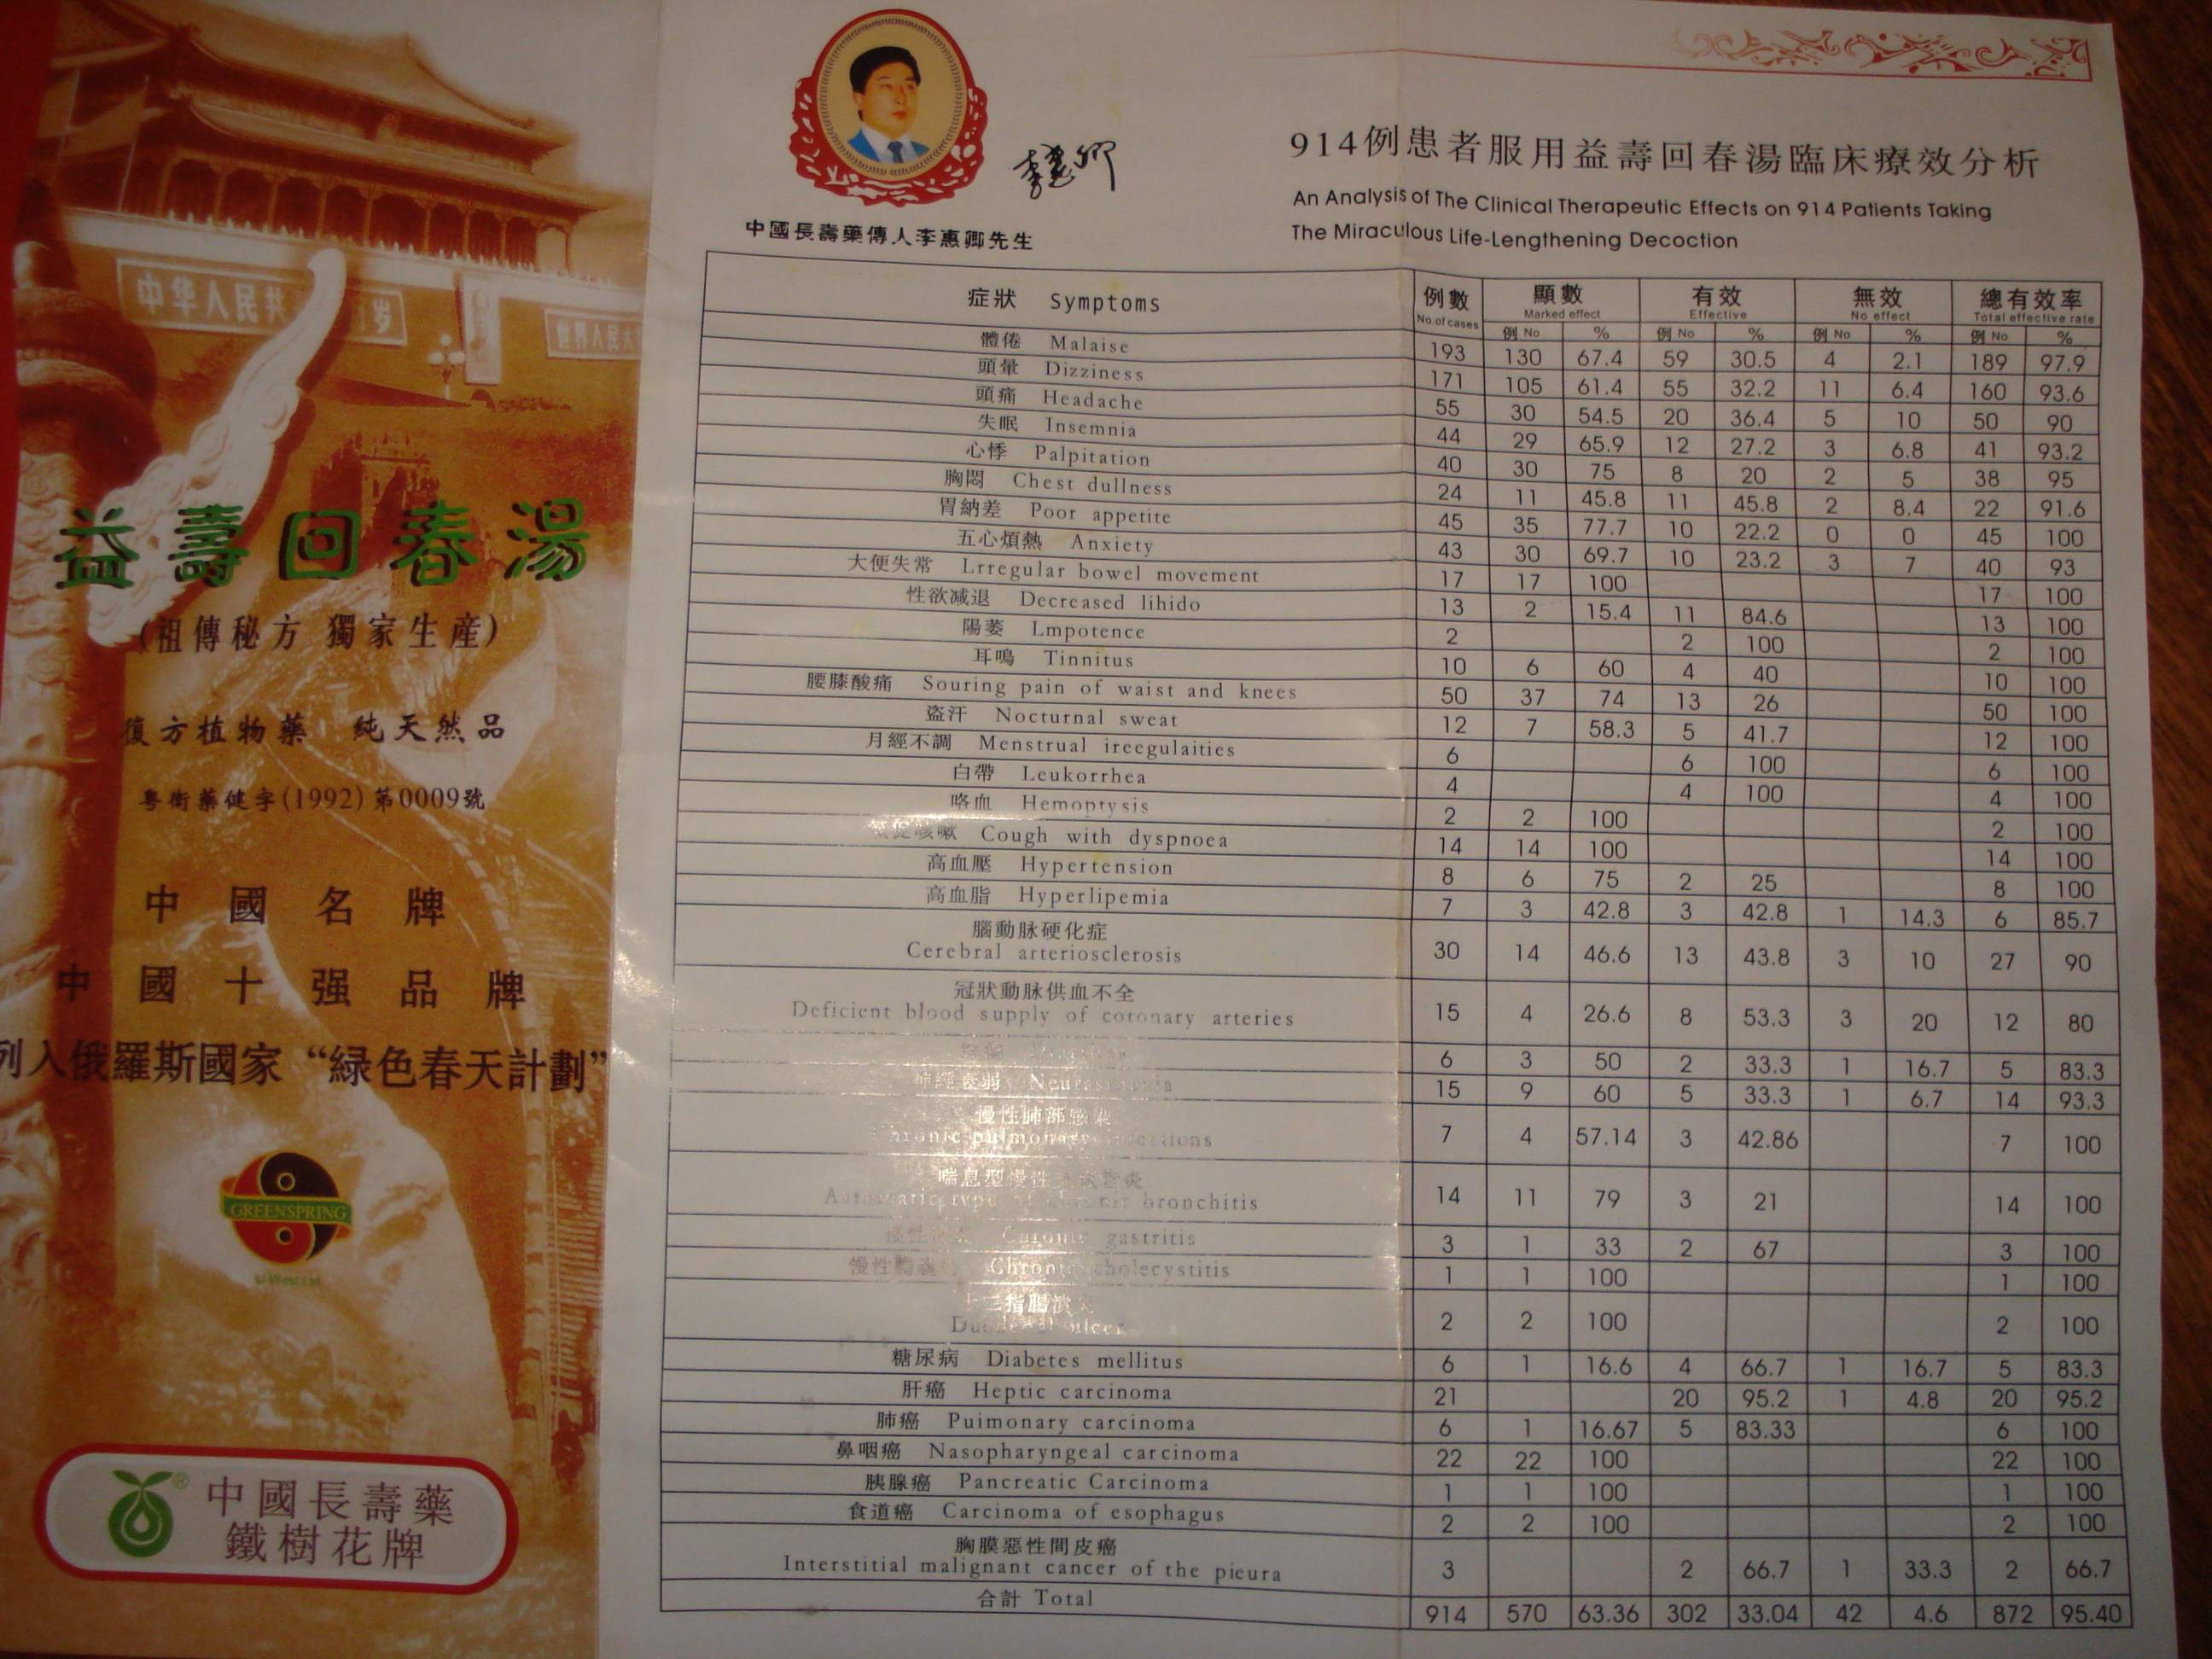 中华人民共
岁
世界人民大
益壽回春湯
(祖傳秘方 獨家生産)
復方植物藥 純天然品
粤衛藥健字(1992)第0009號
中國名牌
中國十强品牌
列入俄羅斯國家“緑色春天計劃”
GREENSPRING
中國長壽藥
鐵樹花牌
中國長壽藥傳人李惠卿先生
914例患者服用益壽回春湯臨床療效分析
An Analysis of The Clinical Therapeutic Effects on 914 Patients Taking
The Miraculous Life-Lengthening Decoction
症狀 Symptoms 例數 No.of cases 顯數 Marked effect 有效 Effective 無效 No effect 總有效率 Total effective rate
例 No % 例 No % 例 No % 例 No %
體倦 Malaise 193 130 67.4 59 30.5 4 2.1 189 97.9
頭暈 Dizziness 171 105 61.4 55 32.2 11 6.4 160 93.6
頭痛 Headache 55 30 54.5 20 36.4 5 10 50 90
失眠 Insemnia 44 29 65.9 12 27.2 3 6.8 41 93.2
心悸 Palpitation 40 30 75 8 20 2 5 38 95
胸悶 Chest dullness 24 11 45.8 11 45.8 2 8.4 22 91.6
胃納差 Poor appetite 45 35 77.7 10 22.2 0 0 45 100
五心煩熱 Anxiety 43 30 69.7 10 23.2 3 7 40 93
大便失常 Lrregular bowel movement 17 17 100 17 100
性欲减退 Decreased lihido 13 2 15.4 11 84.6 13 100
陽萎 Lmpotence 2 2 100 2 100
耳鳴 Tinnitus 10 6 60 4 40 10 100
腰膝酸痛 Souring pain of waist and knees 50 37 74 13 26 50 100
盗汗 Nocturnal sweat 12 7 58.3 5 41.7 12 100
月經不調 Menstrual ireegulaities 6 6 100 6 100
白帶 Leukorrhea 4 4 100 4 100
咯血 Hemoptysis 2 2 100 2 100
咳嗽 Cough with dyspnoea 14 14 100 14 100
高血壓 Hypertension 8 6 75 2 25 8 100
高血脂 Hyperlipemia 7 3 42.8 3 42.8 1 14.3 6 85.7
腦動脉硬化症
Cerebral arteriosclerosis 30 14 46.6 13 43.8 3 10 27 90
冠狀動脉供血不全
Deficient blood supply of coronary arteries 15 4 26.6 8 53.3 3 20 12 80
6 3 50 2 33.3 1 16.7 5 83.3
神經衰弱 15 9 60 5 33.3 1 6.7 14 93.3
慢性肺部感染
Chronic pulmonary 7 4 57.14 3 42.86 7 100
喘息型慢性
type of chronic bronchitis 14 11 79 3 21 14 100
慢性 Chronic gastritis 3 1 33 2 67 3 100
慢性 Chronic cholecystitis 1 1 100 1 100
十二指腸潰
Duodenal ulcer 2 2 100 2 100
糖尿病 Diabetes mellitus 6 1 16.6 4 66.7 1 16.7 5 83.3
肝癌 Heptic carcinoma 21 20 95.2 1 4.8 20 95.2
肺癌 Puimonary carcinoma 6 1 16.67 5 83.33 6 100
鼻咽癌 Nasopharyngeal carcinoma 22 22 100 22 100
胰腺癌 Pancreatic Carcinoma 1 1 100 1 100
食道癌 Carcinoma of esophagus 2 2 100 2 100
胸膜惡性間皮癌
Interstitial malignant cancer of the pieura 3 2 66.7 1 33.3 2 66.7
合計 Total 914 570 63.36 302 33.04 42 4.6 872 95.40